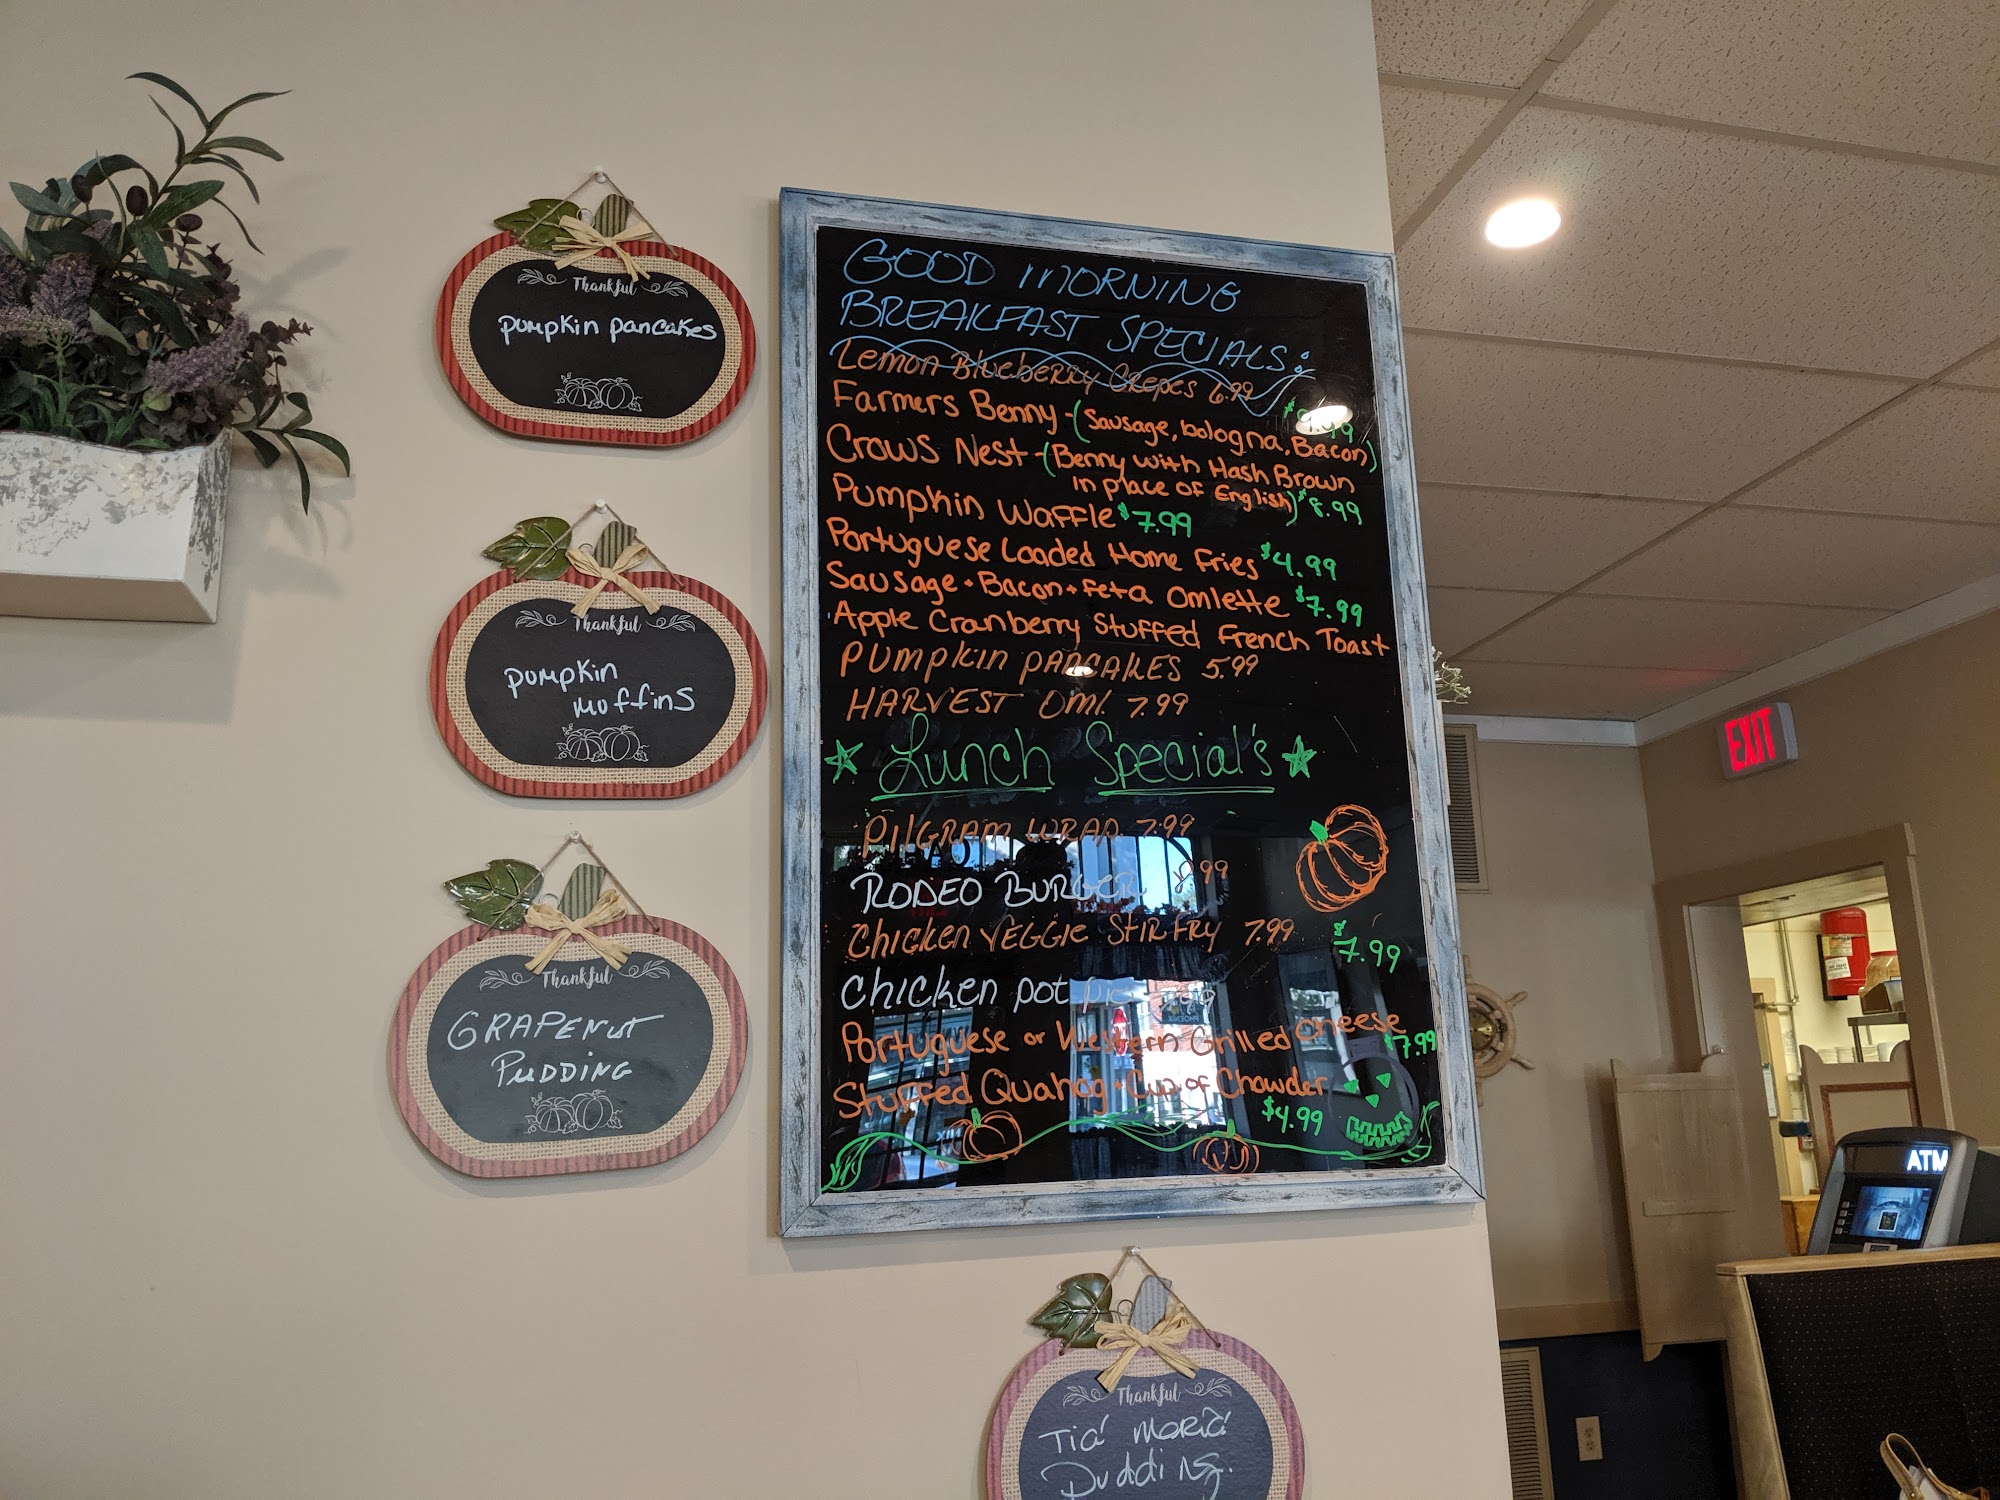 Thankful
pumpkin pancakes
Thankful
pumpkin
muffins
Thankful
GRAPENUT
PUDDING
GOOD MORNING
BREAKFAST SPECIALS:
Lemon Blueberry Crepes 6.99
Farmers Benny - (Sausage, bologna, Bacon)
Crows Nest - (Benny with Hash Brown
in place of English) $8.99
Pumpkin Waffle $7.99
Portuguese Loaded Home Fries $4.99
Sausage + Bacon + Feta Omlette $7.99
Apple Cranberry Stuffed French Toast
PUMPKIN PANCAKES 5.99
HARVEST OML. 7.99
Lunch Special's
PILGRAM WRAP 7.99
RODEO BURGER 8.99
CHICKEN VEGGIE STIR FRY 7.99 $7.99
CHICKEN POT PIE
Portuguese or Western Grilled Cheese
$7.99
Stuffed Quahog + Cup of Chowder
$4.99
Thankful
Tia' Maria'
Pudding.
EXIT
ATM